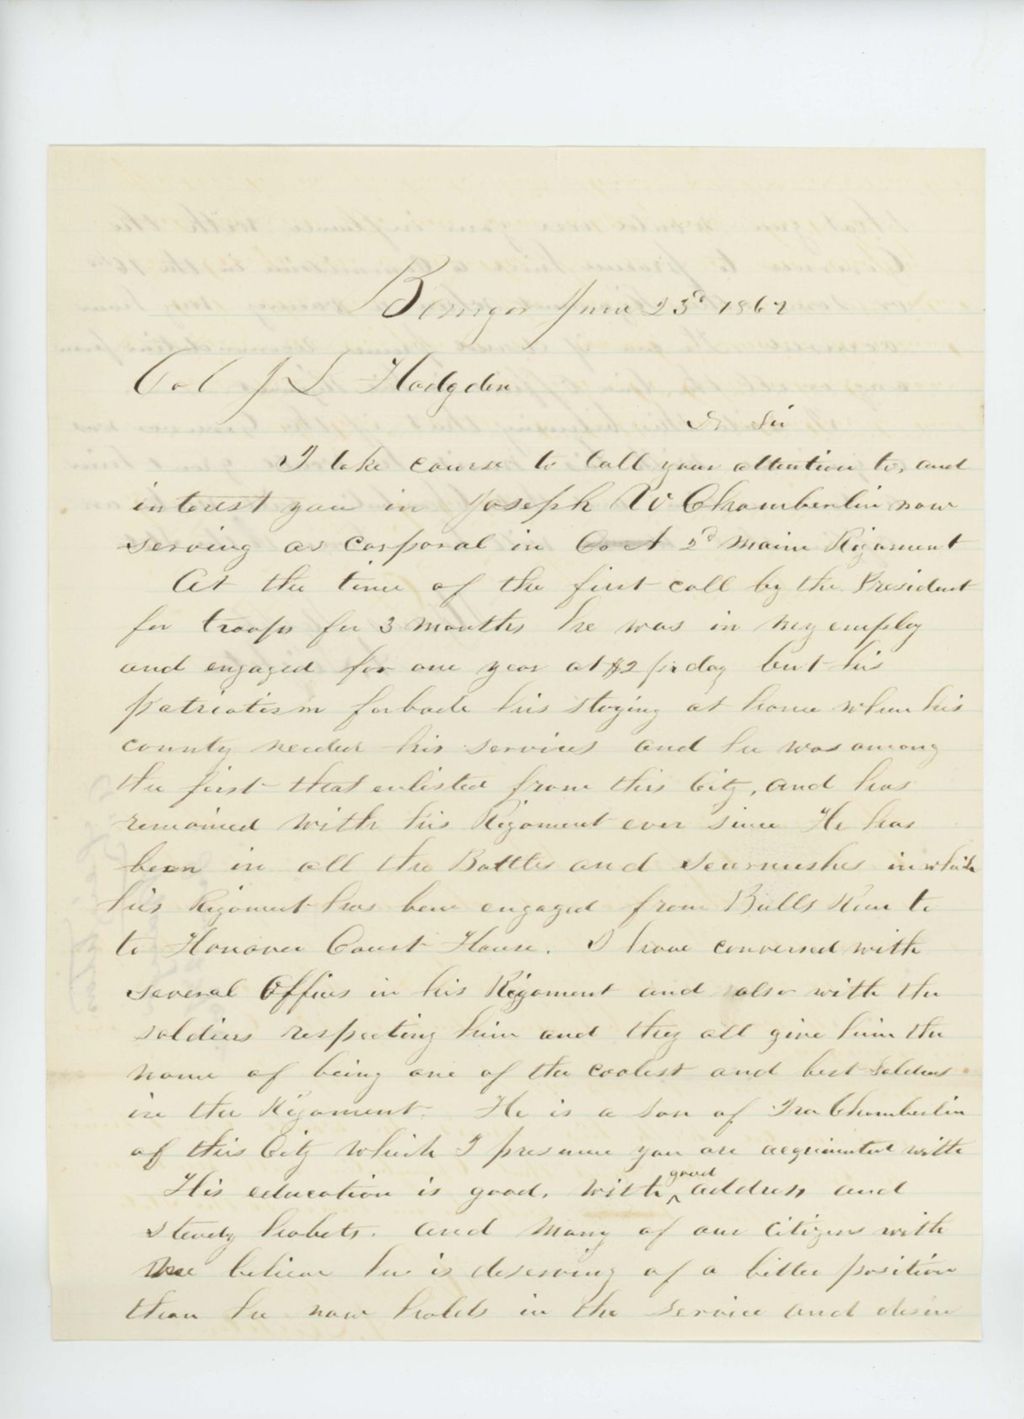 Bangor June 23d 1862
Col J L Hodgdon
Dr Sir
I take course to Call your attention to, and
interest you in Joseph W Chamberlin now
serving as corporal in Co A 2d Maine Rigament
At the time of the first call by the President
for troops for 3 months he was in my employ
and engaged for one year at $2 pr day but his
patriotism forbade his staying at home when his
county needed his services and he was among
the first that enlisted from this City, and has
remained with his Rigament ever since He has
been in all the Battles and Scurmishes in which
his Rigament has been engaged from Bulls Run to
to Hanover Court House. I have conversed with
several Officers in his Rigament and also with the
soldiers respecting him and they all give him the
name of being one of the coolest and best Soldiers
in the Rigament. He is a Son of Ira Chamberlin
of this City which I presume you are acquainted with
His education is good, with ^good address and
steady habets. and many of our Citizens with
me believe he is deserving of a better position
than he now holds in the Service and desire